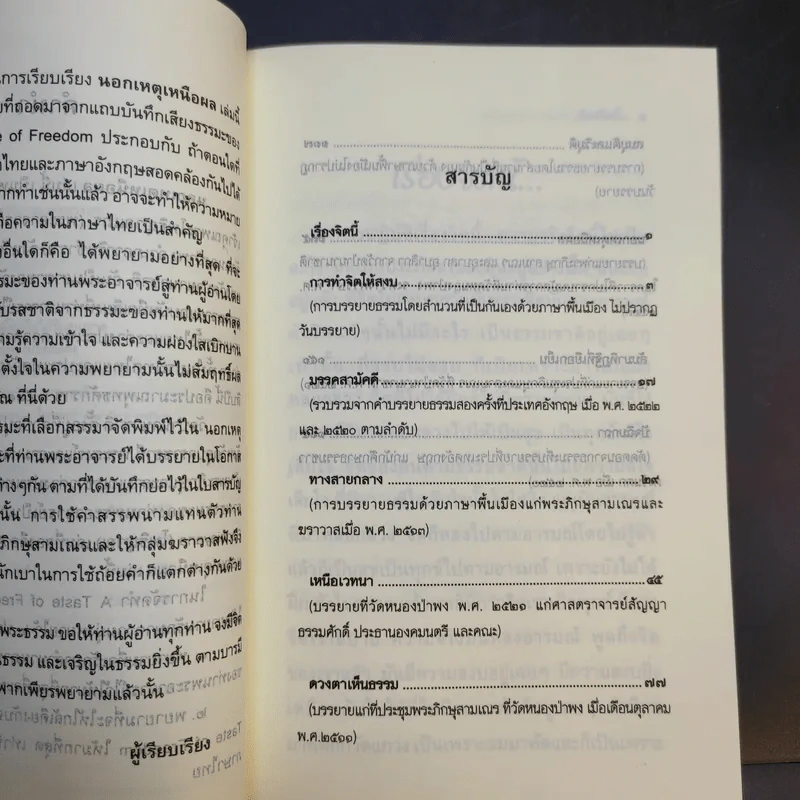 นการเรียบเรียง นอกเหตุเหนือผล เล่มนี้
ยที่ถอดมาจากแถบบันทึกเสียงธรรมะของ
e of Freedom ประกอบกับ ถ้าตอนใดที่
าไทยและภาษาอังกฤษสอดคล้องกันไปได้
ากทำเช่นนั้นแล้ว อาจจะทำให้ความหมาย
ถือความในภาษาไทยเป็นสำคัญ
งอื่นใดก็คือ ได้พยายามอย่างที่สุด ที่จะ
รมะของท่านพระอาจารย์สู่ท่านผู้อ่านโดย
ับรสชาติจากธรรมะของท่านให้มากที่สุด
ามรู้ความเข้าใจ และความผ่องใสเบิกบาน
ตั้งใจในความพยายามนั้นไม่สัมฤทธิ์ผล
ณ ที่นี้ด้วย
รมะที่เลือกสรรมาจัดพิมพ์ไว้ใน นอกเหตุ
ะที่ท่านพระอาจารย์ได้บรรยายในโอกาส
่างๆกัน ตามที่ได้บันทึกย่อไว้ในใบสารบัญ
นั้น การใช้คำสรรพนามแทนตัวท่าน
ภิกษุสามเณรและให้กลุ่มฆราวาสฟังจึง
นักเบาในการใช้ถ้อยคำก็แตกต่างกันด้วย
พระธรรม ขอให้ท่านผู้อ่านทุกท่าน จงมีจิต
นธรรม และเจริญในธรรมยิ่งขึ้น ตามบารมี
พากเพียรพยายามแล้วนั้น
ผู้เรียบเรียง
สารบัญ
เรื่องจิตนี้ ๑
การทำจิตให้สงบ ๓
(การบรรยายธรรมโดยสำนวนที่เป็นกันเองด้วยภาษาพื้นเมือง ไม่ปรากฏ
วันบรรยาย)
มรรคสามัคคี ๑๗
(รวบรวมจากคำบรรยายธรรมสองครั้งที่ประเทศอังกฤษ เมื่อ พ.ศ. ๒๕๒๒
และ ๒๕๒๐ ตามลำดับ)
ทางสายกลาง ๒๙
(การบรรยายธรรมด้วยภาษาพื้นเมืองแก่พระภิกษุสามเณรและ
ฆราวาสเมื่อ พ.ศ. ๒๕๑๓)
เหนือเวทนา ๔๕
(บรรยายที่วัดหนองป่าพง พ.ศ. ๒๕๒๑ แก่ศาสตราจารย์สัญญา
ธรรมศักดิ์ ประธานองคมนตรี และคณะ)
ดวงตาเห็นธรรม ๗๗
(บรรยายแก่ที่ประชุมพระภิกษุสามเณร ที่วัดหนองป่าพง เมื่อเดือนตุลาคม
พ.ศ.๒๕๑๑)